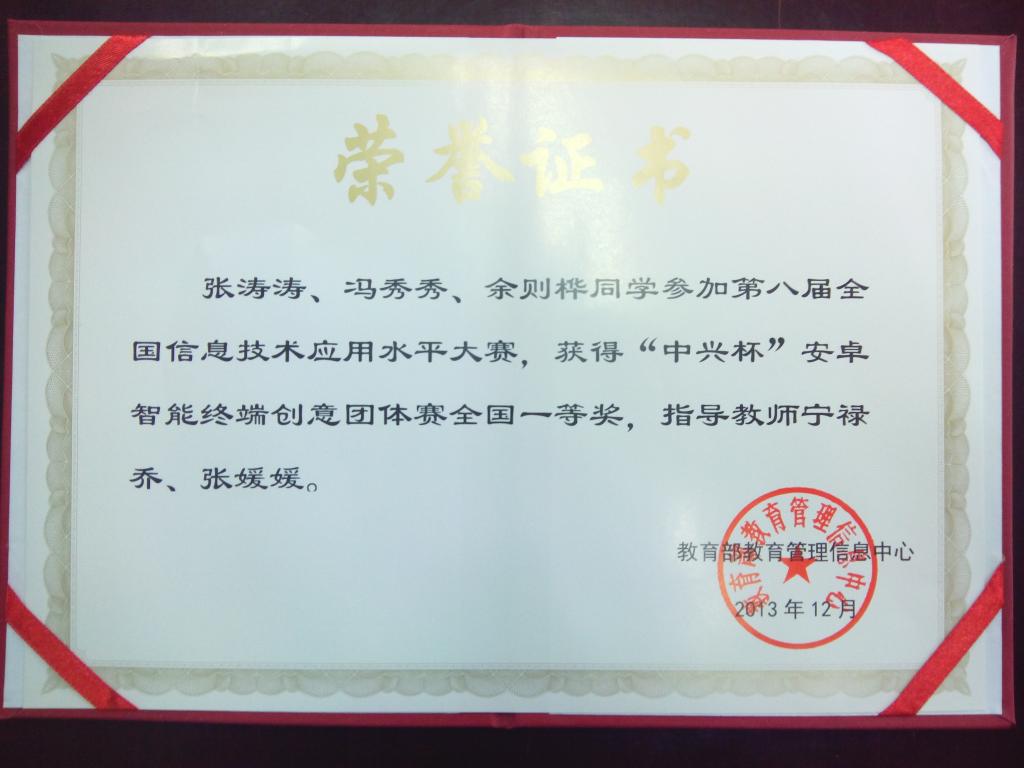 荣誉证书
张涛涛、冯秀秀、余则桦同学参加第八届全
国信息技术应用水平大赛，获得“中兴杯”安卓
智能终端创意团体赛全国一等奖，指导教师宁禄
乔、张媛媛。
教育部教育管理信息中心
教育部教育管理信息中心
2013年12月